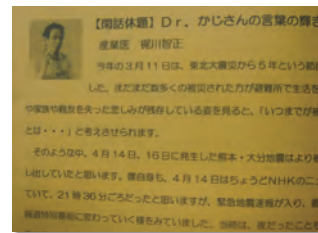 【閑話休題】Dr．かじさんの言葉の輝き
産業医 梶川智正
今年の3月11日は、東北大震災から5年という節
した、まだまだ数多くの被災された方が避難所で生活を
や家族や親友を失った悲しみが残存している姿を見ると、「いつまでが被
とは・・・」と考えさせられます。
そのような中、4月14日、16日に発生した熊本・大分地震はより
し出していたと思います。僕自身も、4月14日はちょうどNHKのニ
ていて、21時36分ごろだったと思いますが、緊急地震速報が入り、
報道特別番組に変わっていく様をみていました。当時は、夜だったことも